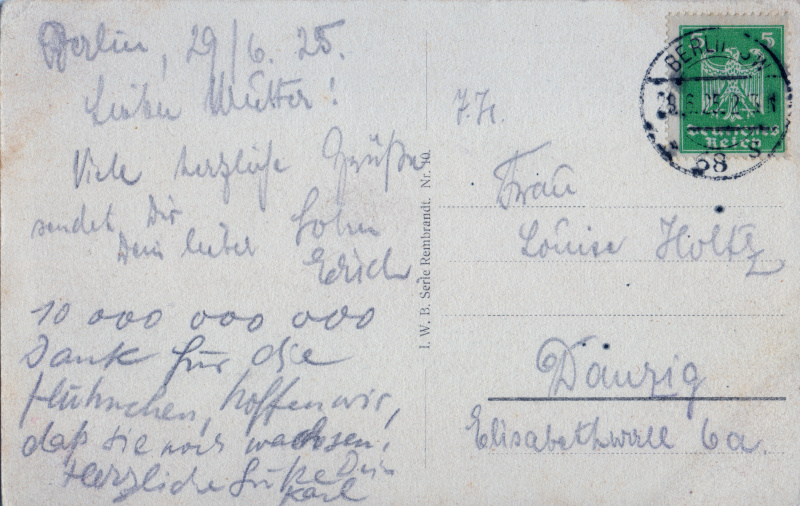 Berlin, 29/6. 25.
Lieben Mutter!
Viele herzliche Grüße
sendet Dir
Dein lieber Sohn
Erich
10 000 000 000
Dank für die
Hühnchen, hoffen wir,
daß sie noch wachsen.
Herzliche Grüße Dein
Karl
I. W. B. Serie Rembrandt. Nr. 10.
5 5
BERLIN SW
29.6.25.
Deutsches
Reich
68
Frau
Louise Holtz
Danzig
Elisabethwall 6a.